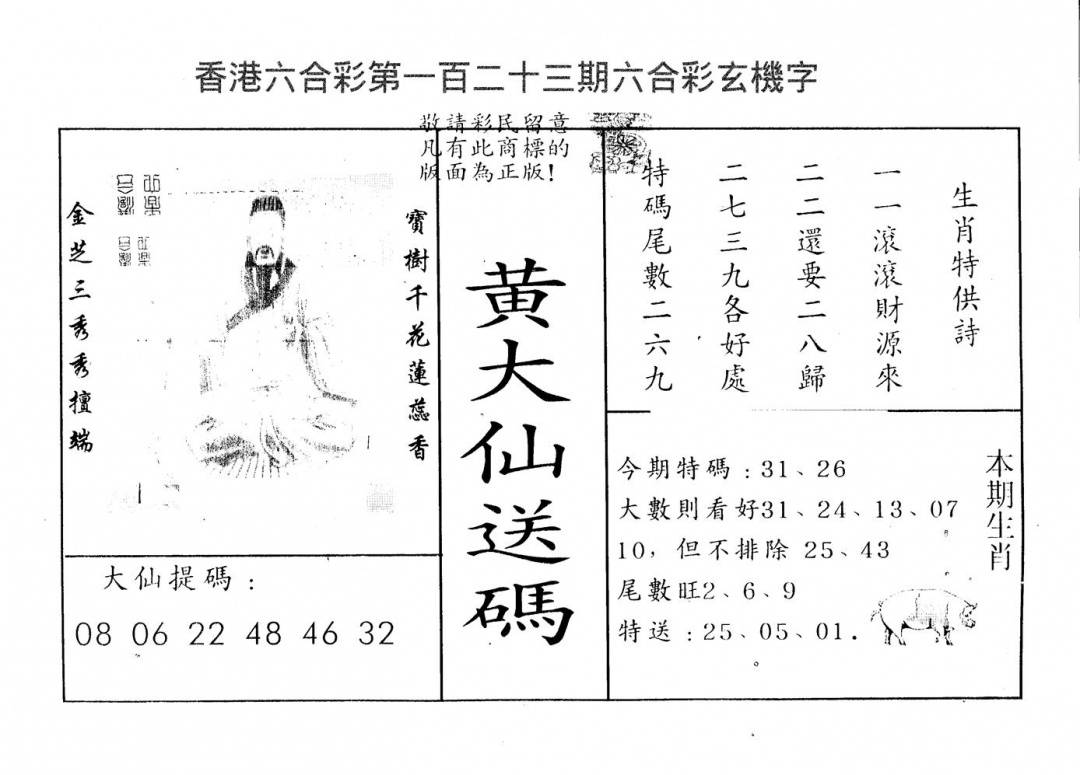 香港六合彩第一百二十三期六合彩玄機字
敬請彩民留意
凡有此商標的
版面為正版!
寶樹千花蓮蕊香
金芝三秀秀擅端
大仙提碼:
08 06 22 48 46 32
黃大仙送碼
生肖特供詩
一一滾滾財源來
二二還要二八歸
二七三九各好處
特碼尾數二六九
本期生肖
今期特碼:31、26
大數則看好31、24、13、07
10,但不排除 25、43
尾數旺2、6、9
特送:25、05、01.